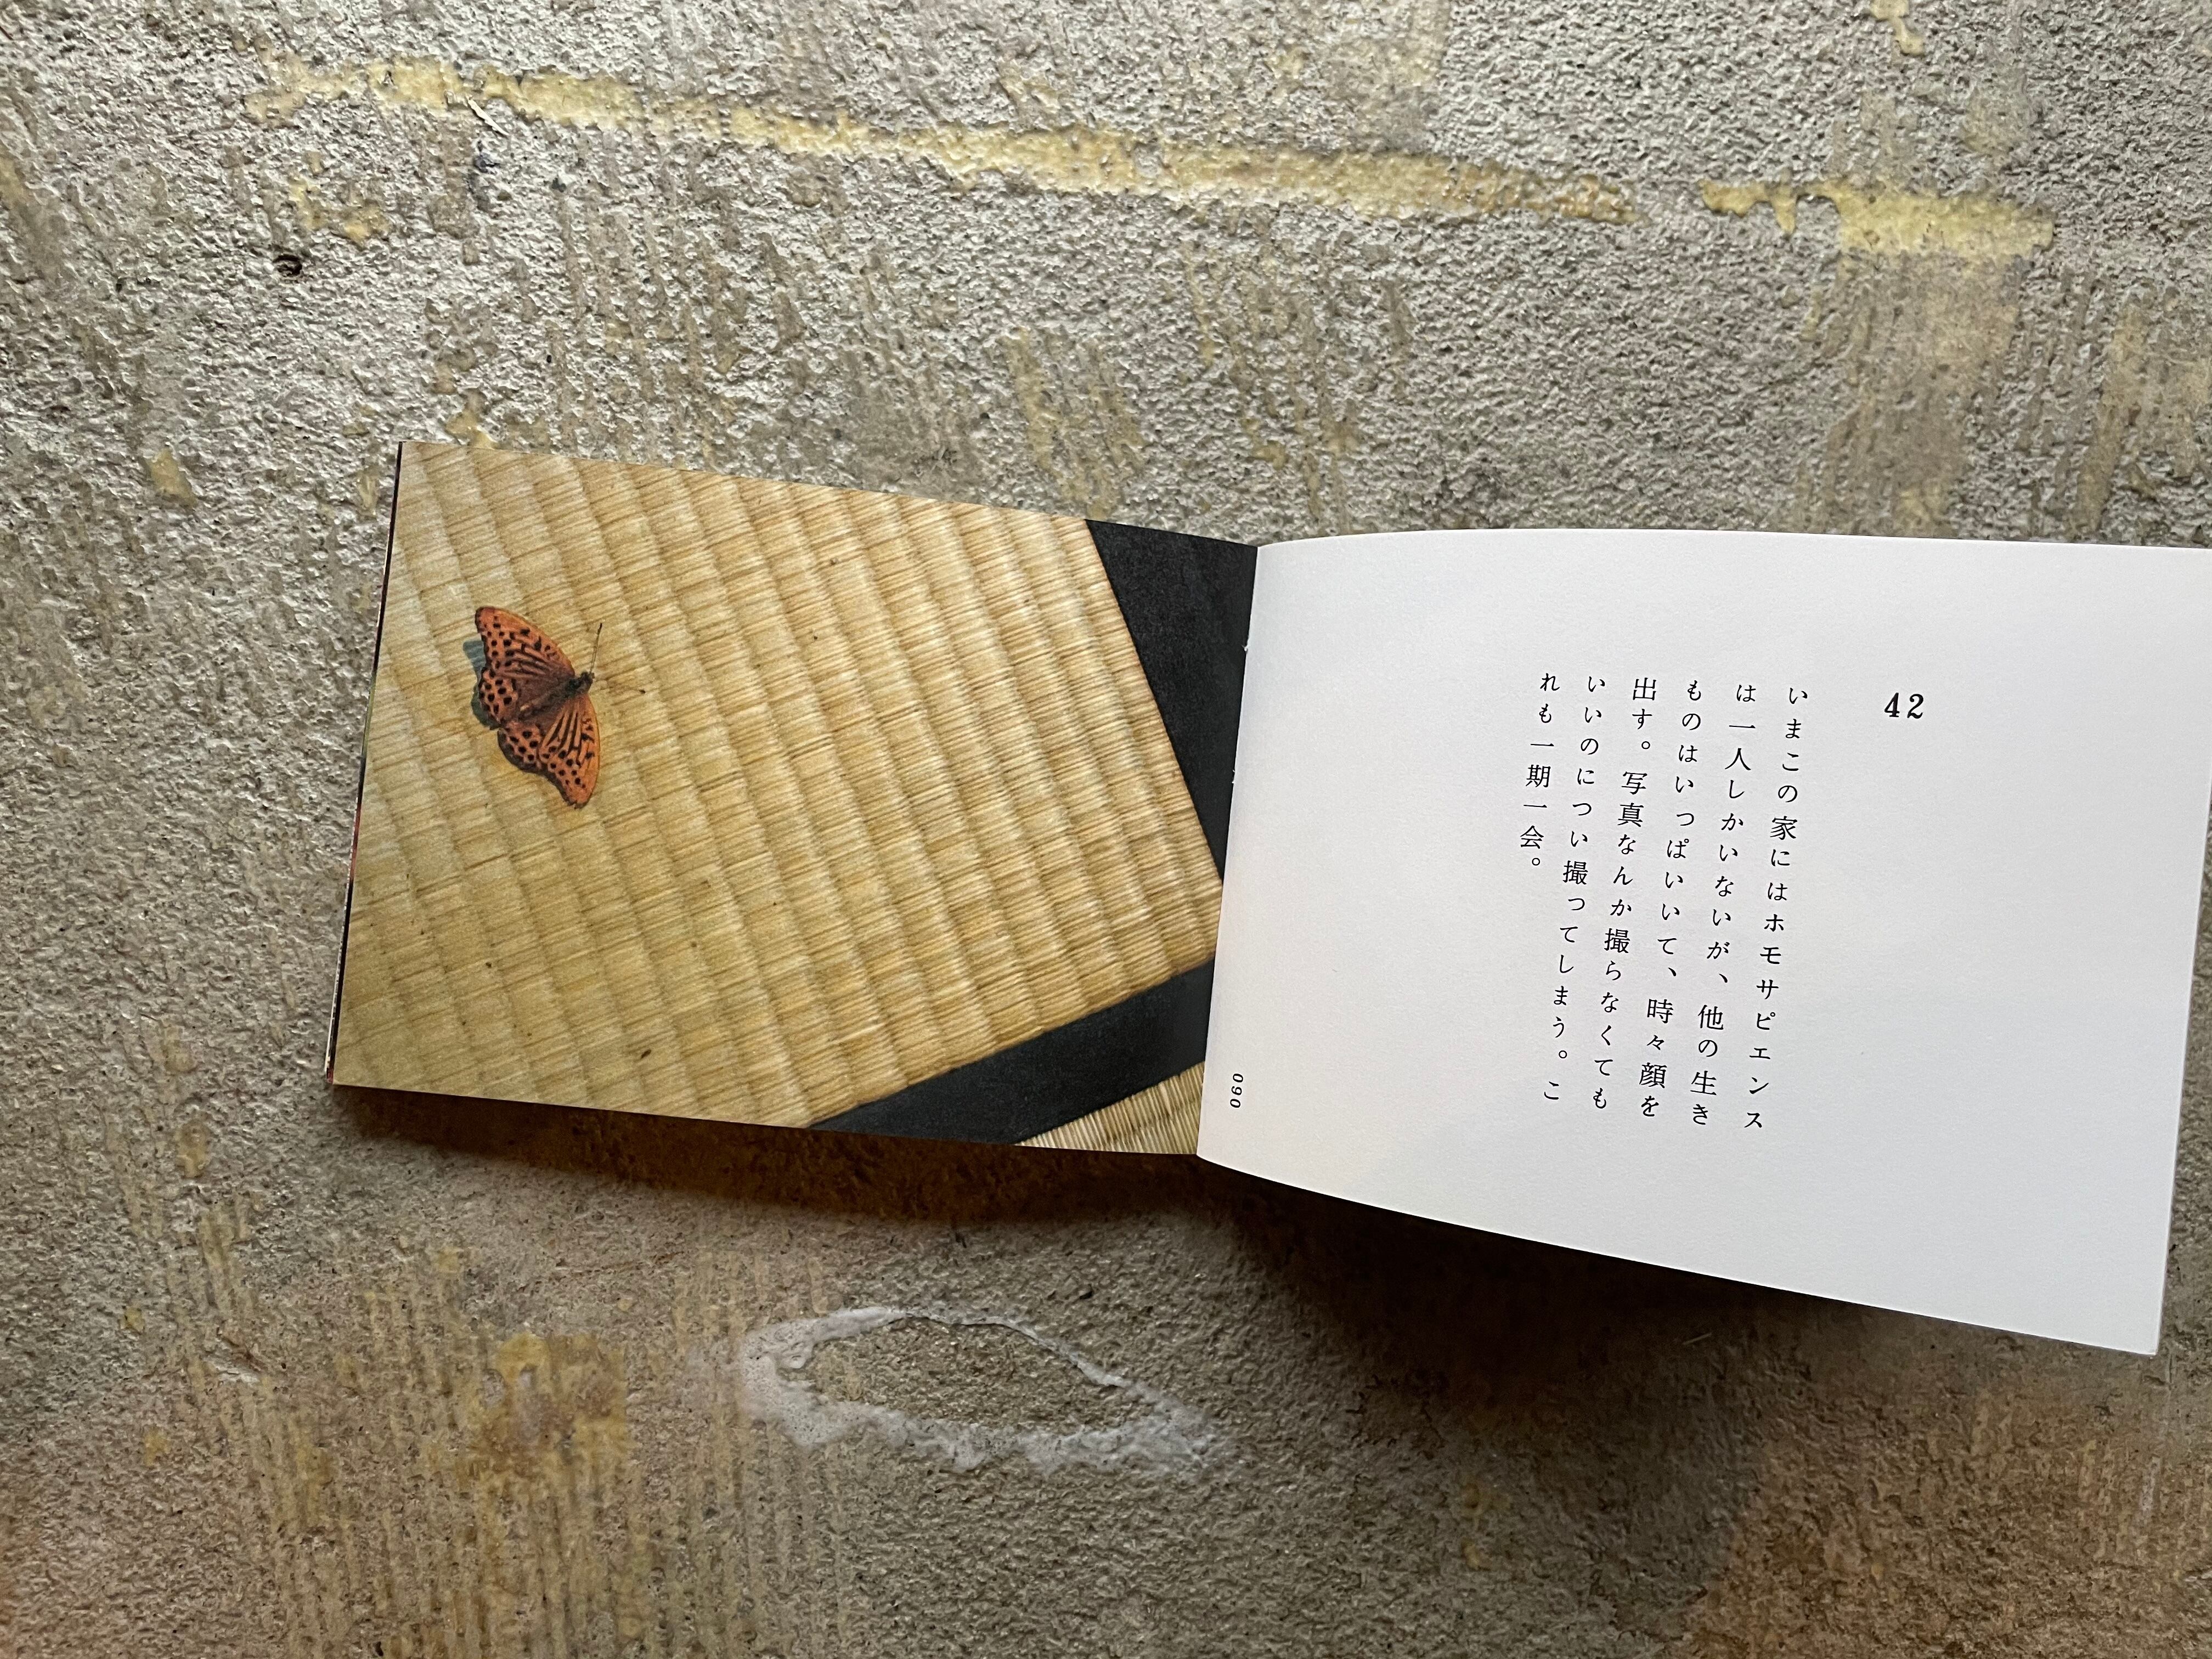 42
いまこの家にはホモサピエンス
は一人しかいないが、他の生き
ものはいっぱいいて、時々顔を
出す。写真なんか撮らなくても
いいのについ撮ってしまう。こ
れも一期一会。
090